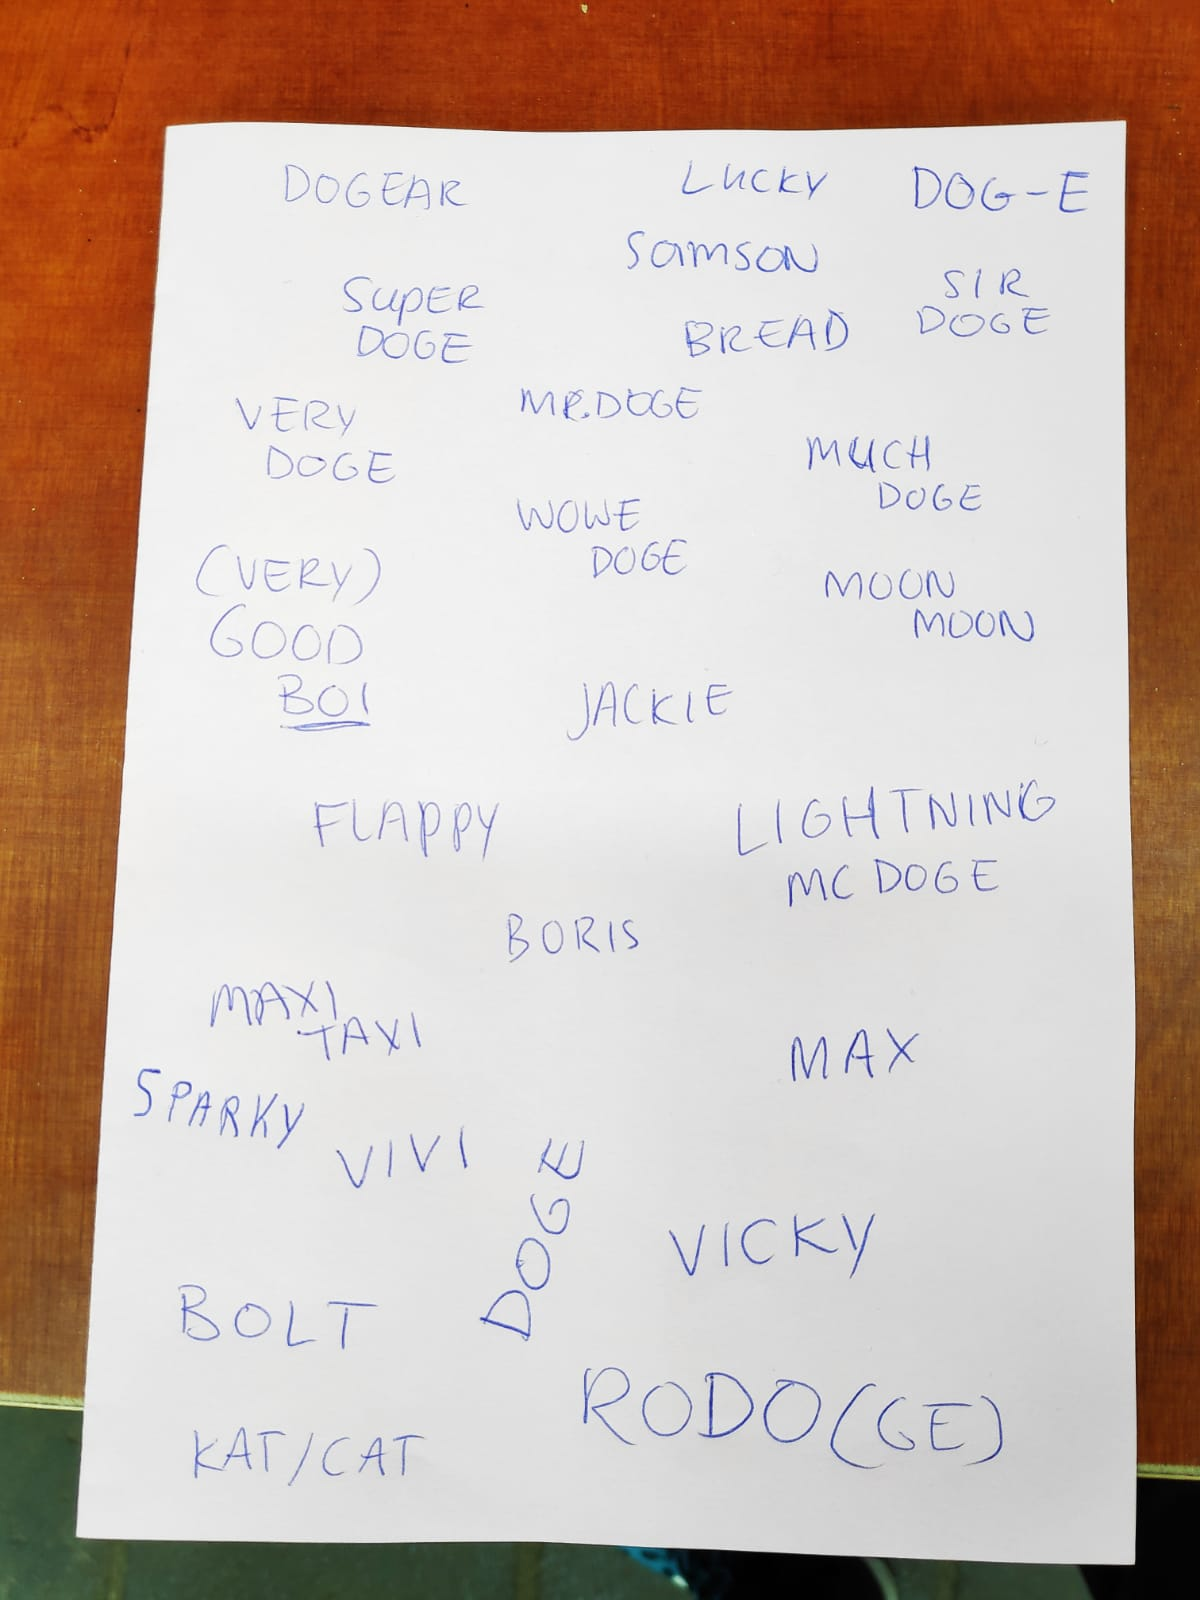 DOGEAR
LUCKY
DOG-E
SAMSON
SUPER
DOGE
BREAD
SIR
DOGE
VERY
DOGE
MR.DOGE
MUCH
DOGE
WOWE
DOGE
(VERY)
GOOD
BOI
MOON
MOON
JACKIE
FLAPPY
LIGHTNING
MC DOGE
BORIS
MAXI
TAXI
MAX
SPARKY
VIVI
DOGE
VICKY
BOLT
RODO(GE)
KAT/CAT